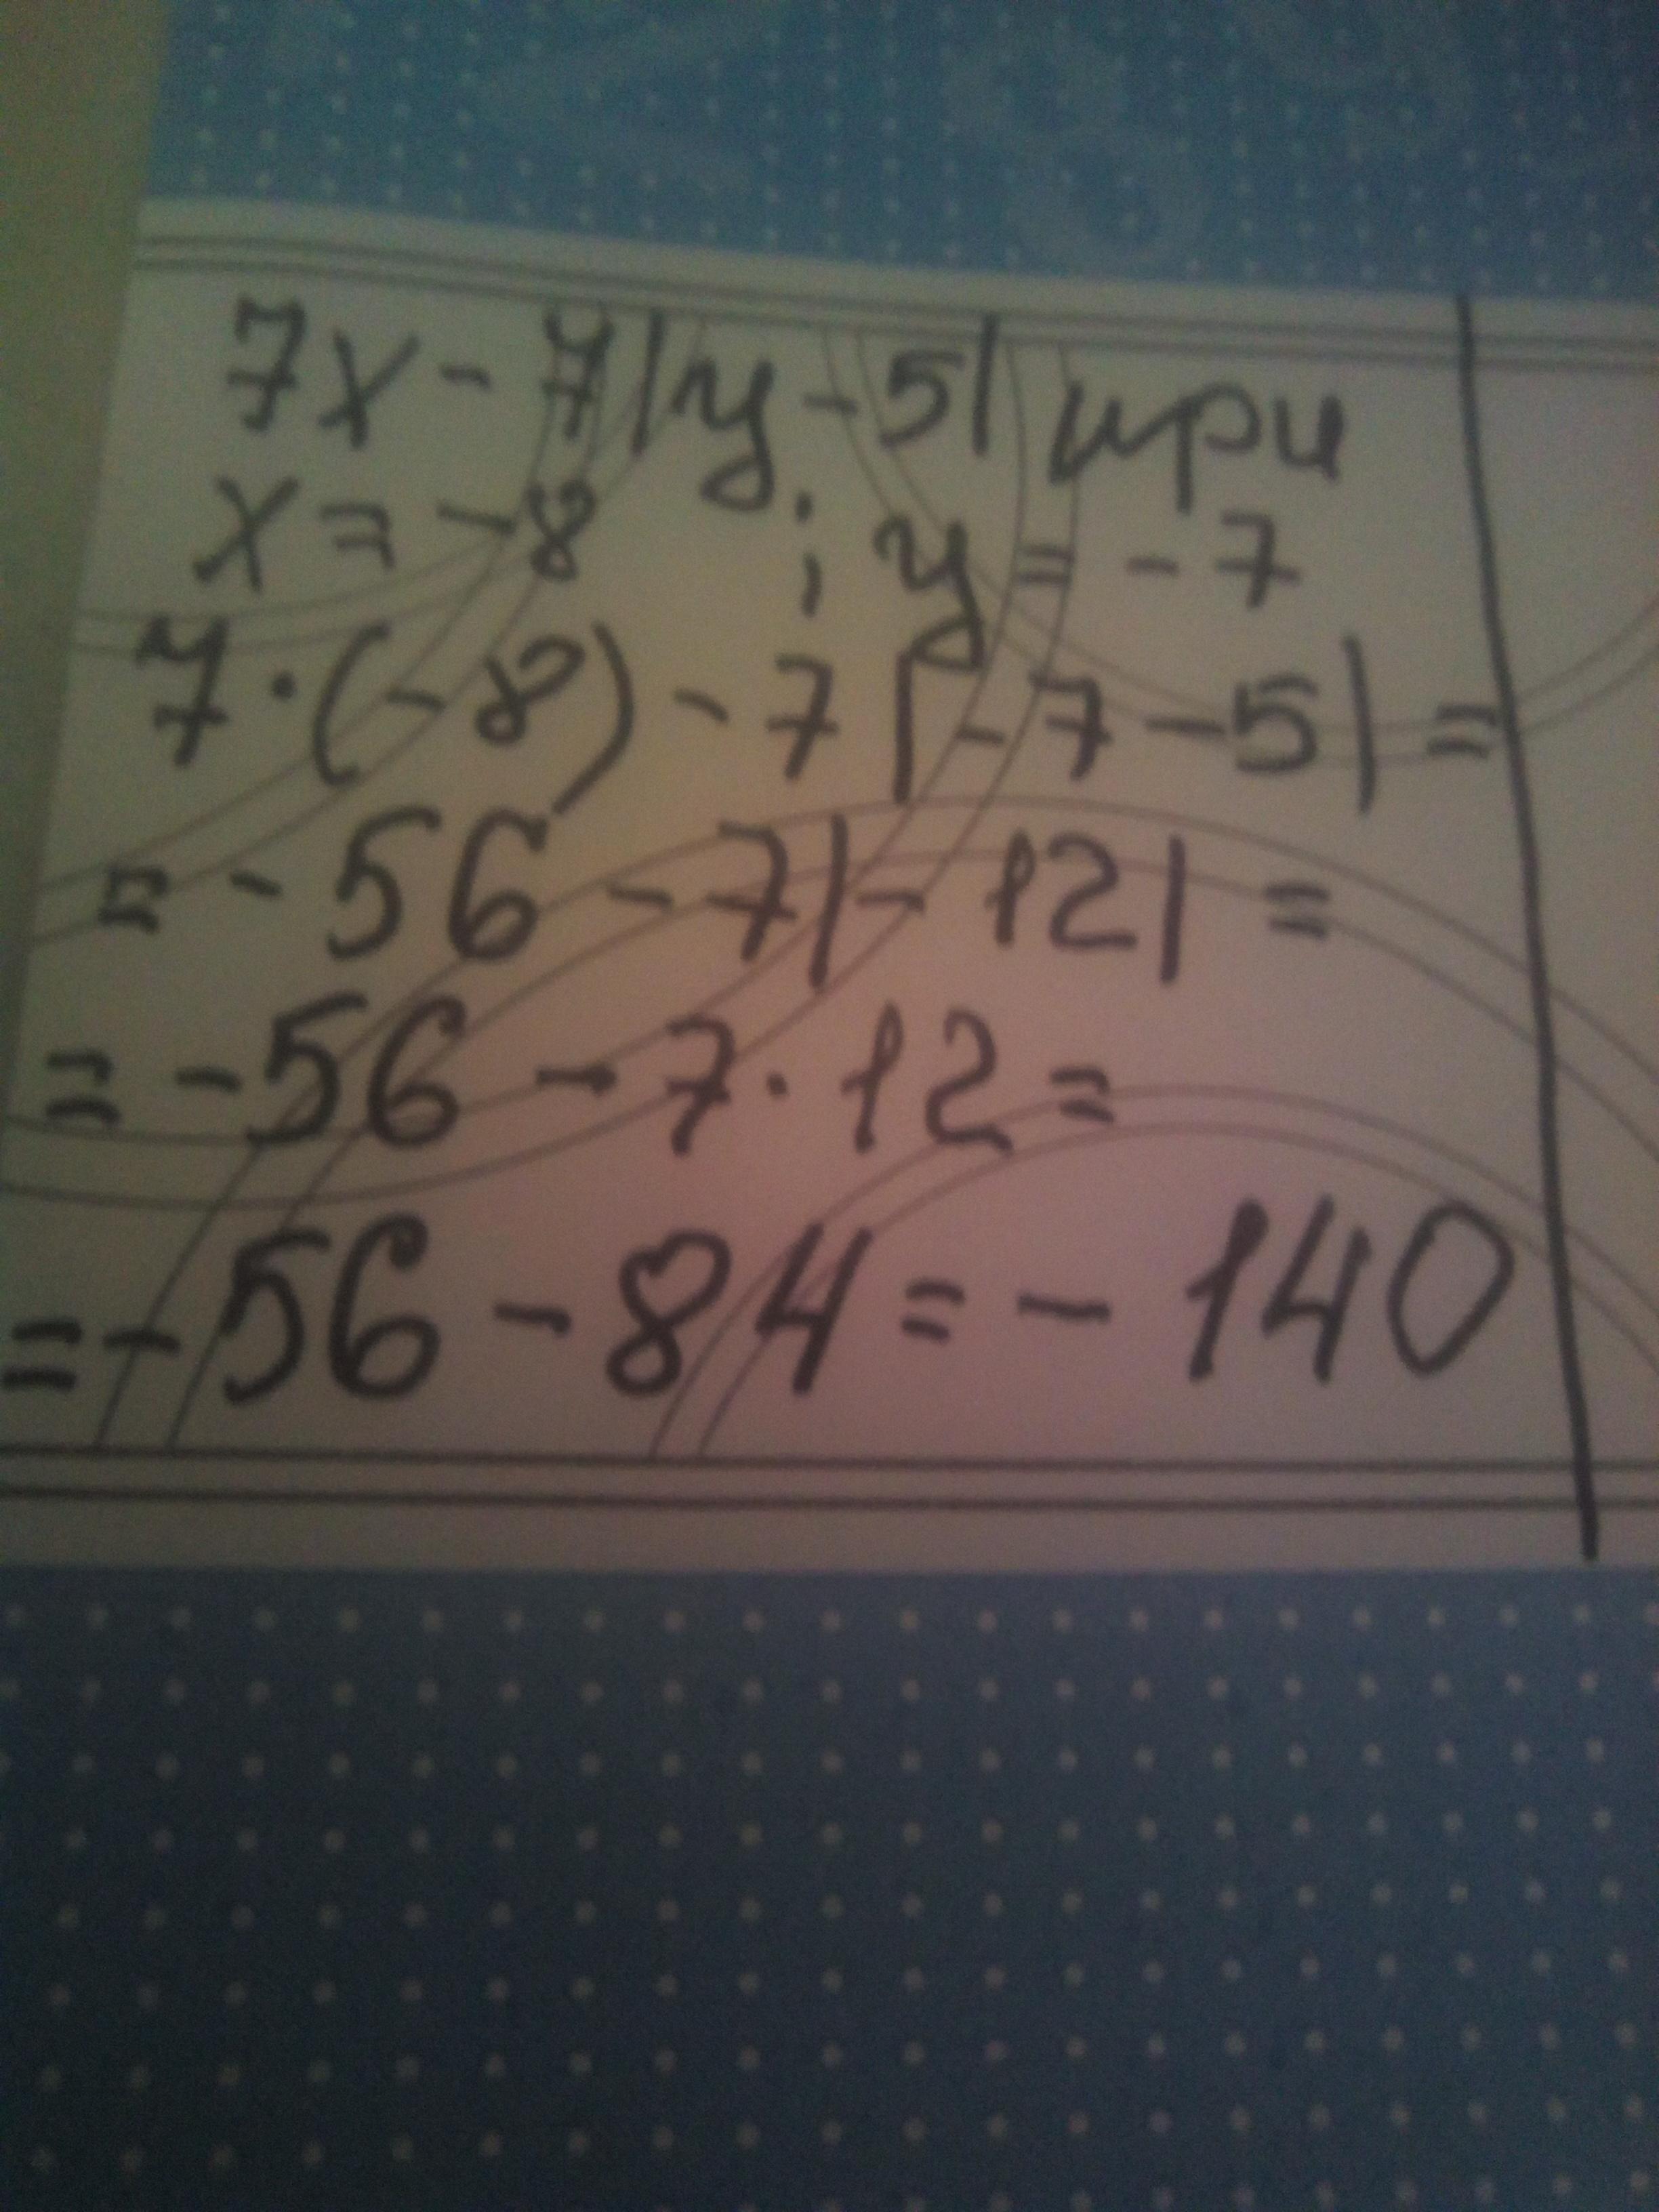 7x - 7|y - 5| при
x = -8 ; y = -7
7·(-8) - 7|-7-5| =
= - 56 - 7|- 12| =
= - 56 - 7·12 =
= - 56 - 84 = - 140